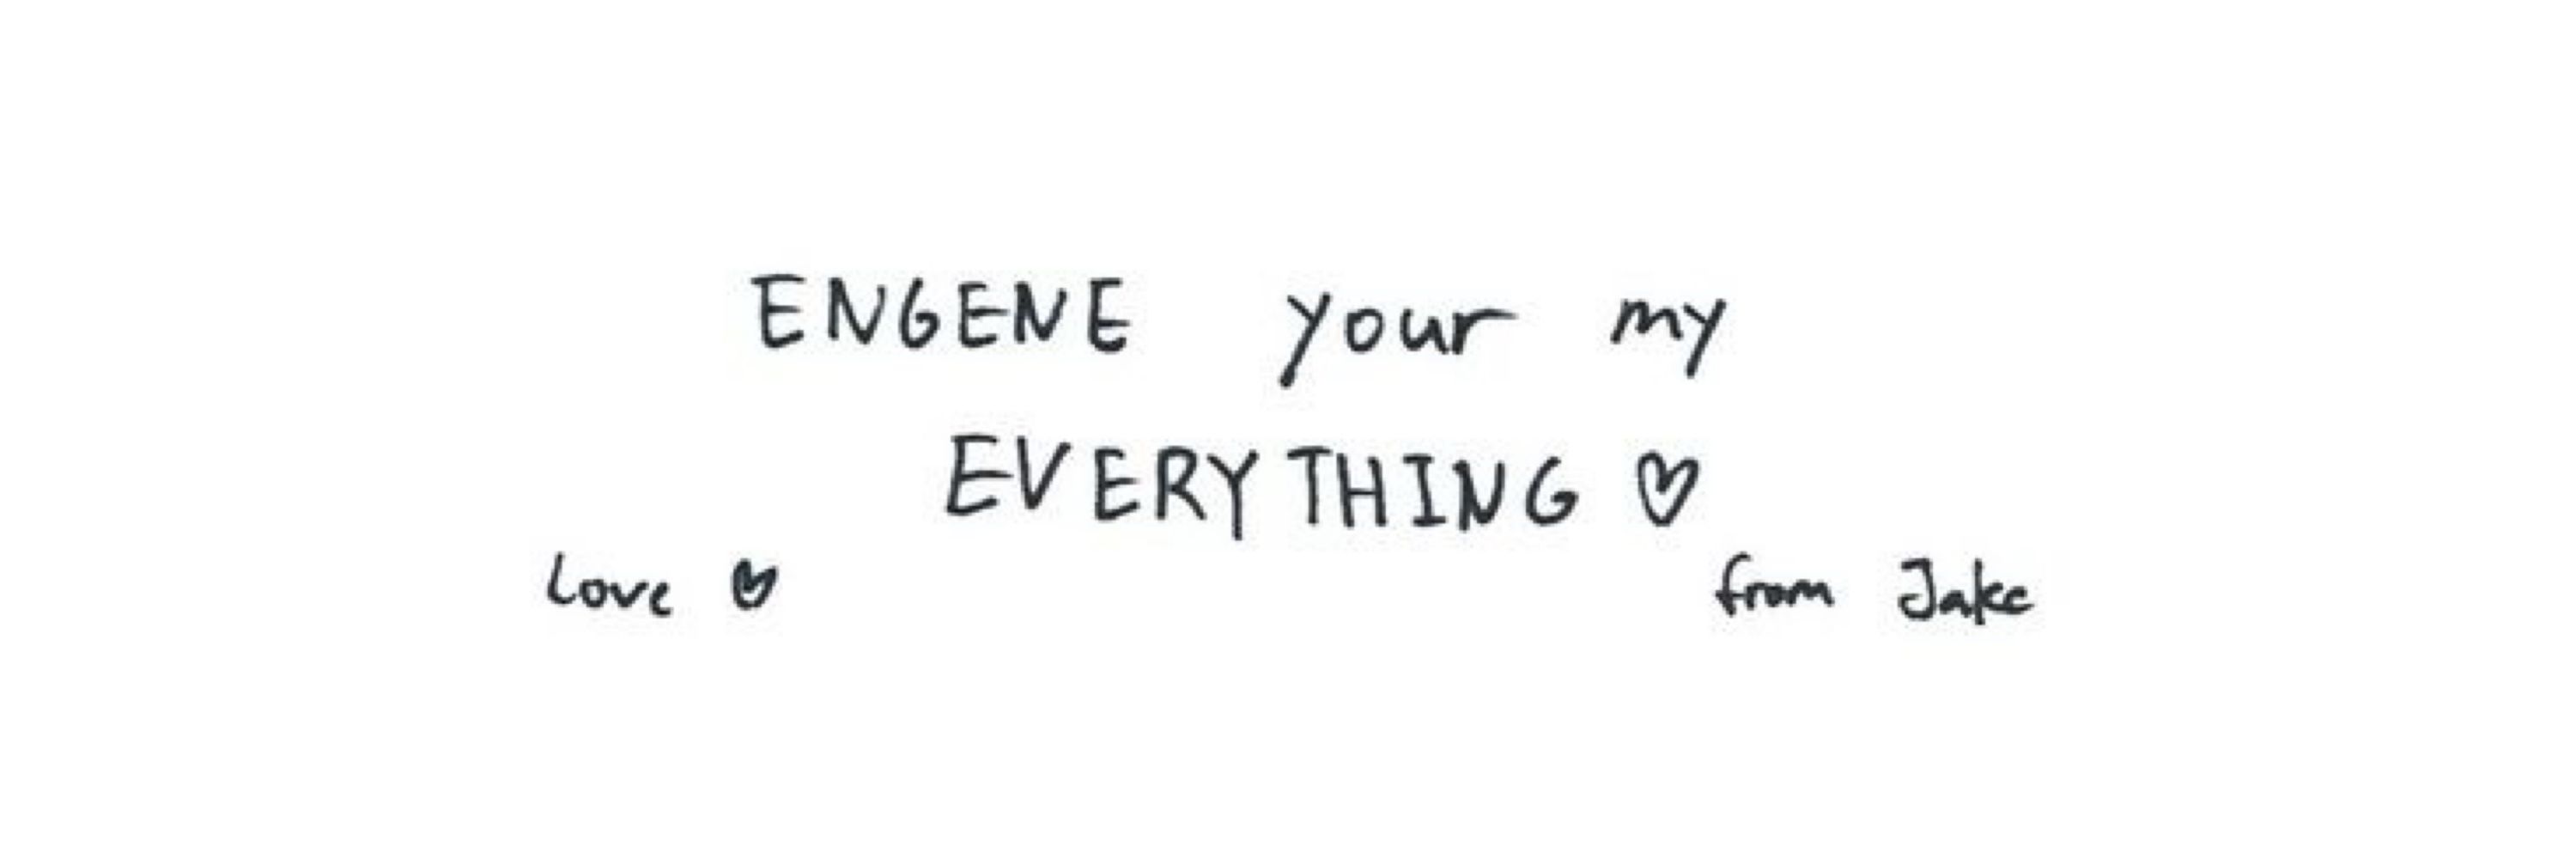 ENGENE your my
EVERYTHING ♡
love ♡ from Jake